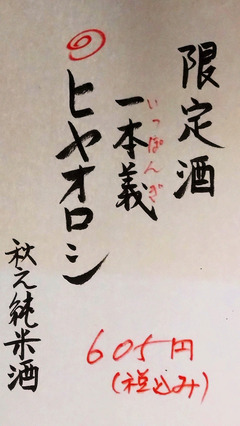 限定酒
一本義
いっぽんぎ
ヒヤオロシ
秋元純米酒
605円
(税込み)